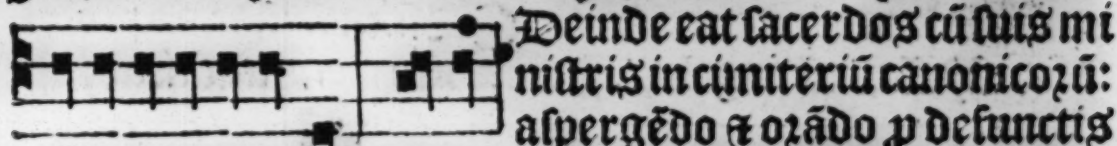 Deinde eat ſacerdos cū ſuis mi
niſtris in cimiteriū canonicoꝝū:
aſpergēdo ⁊ oꝛādo ꝑ defunctis